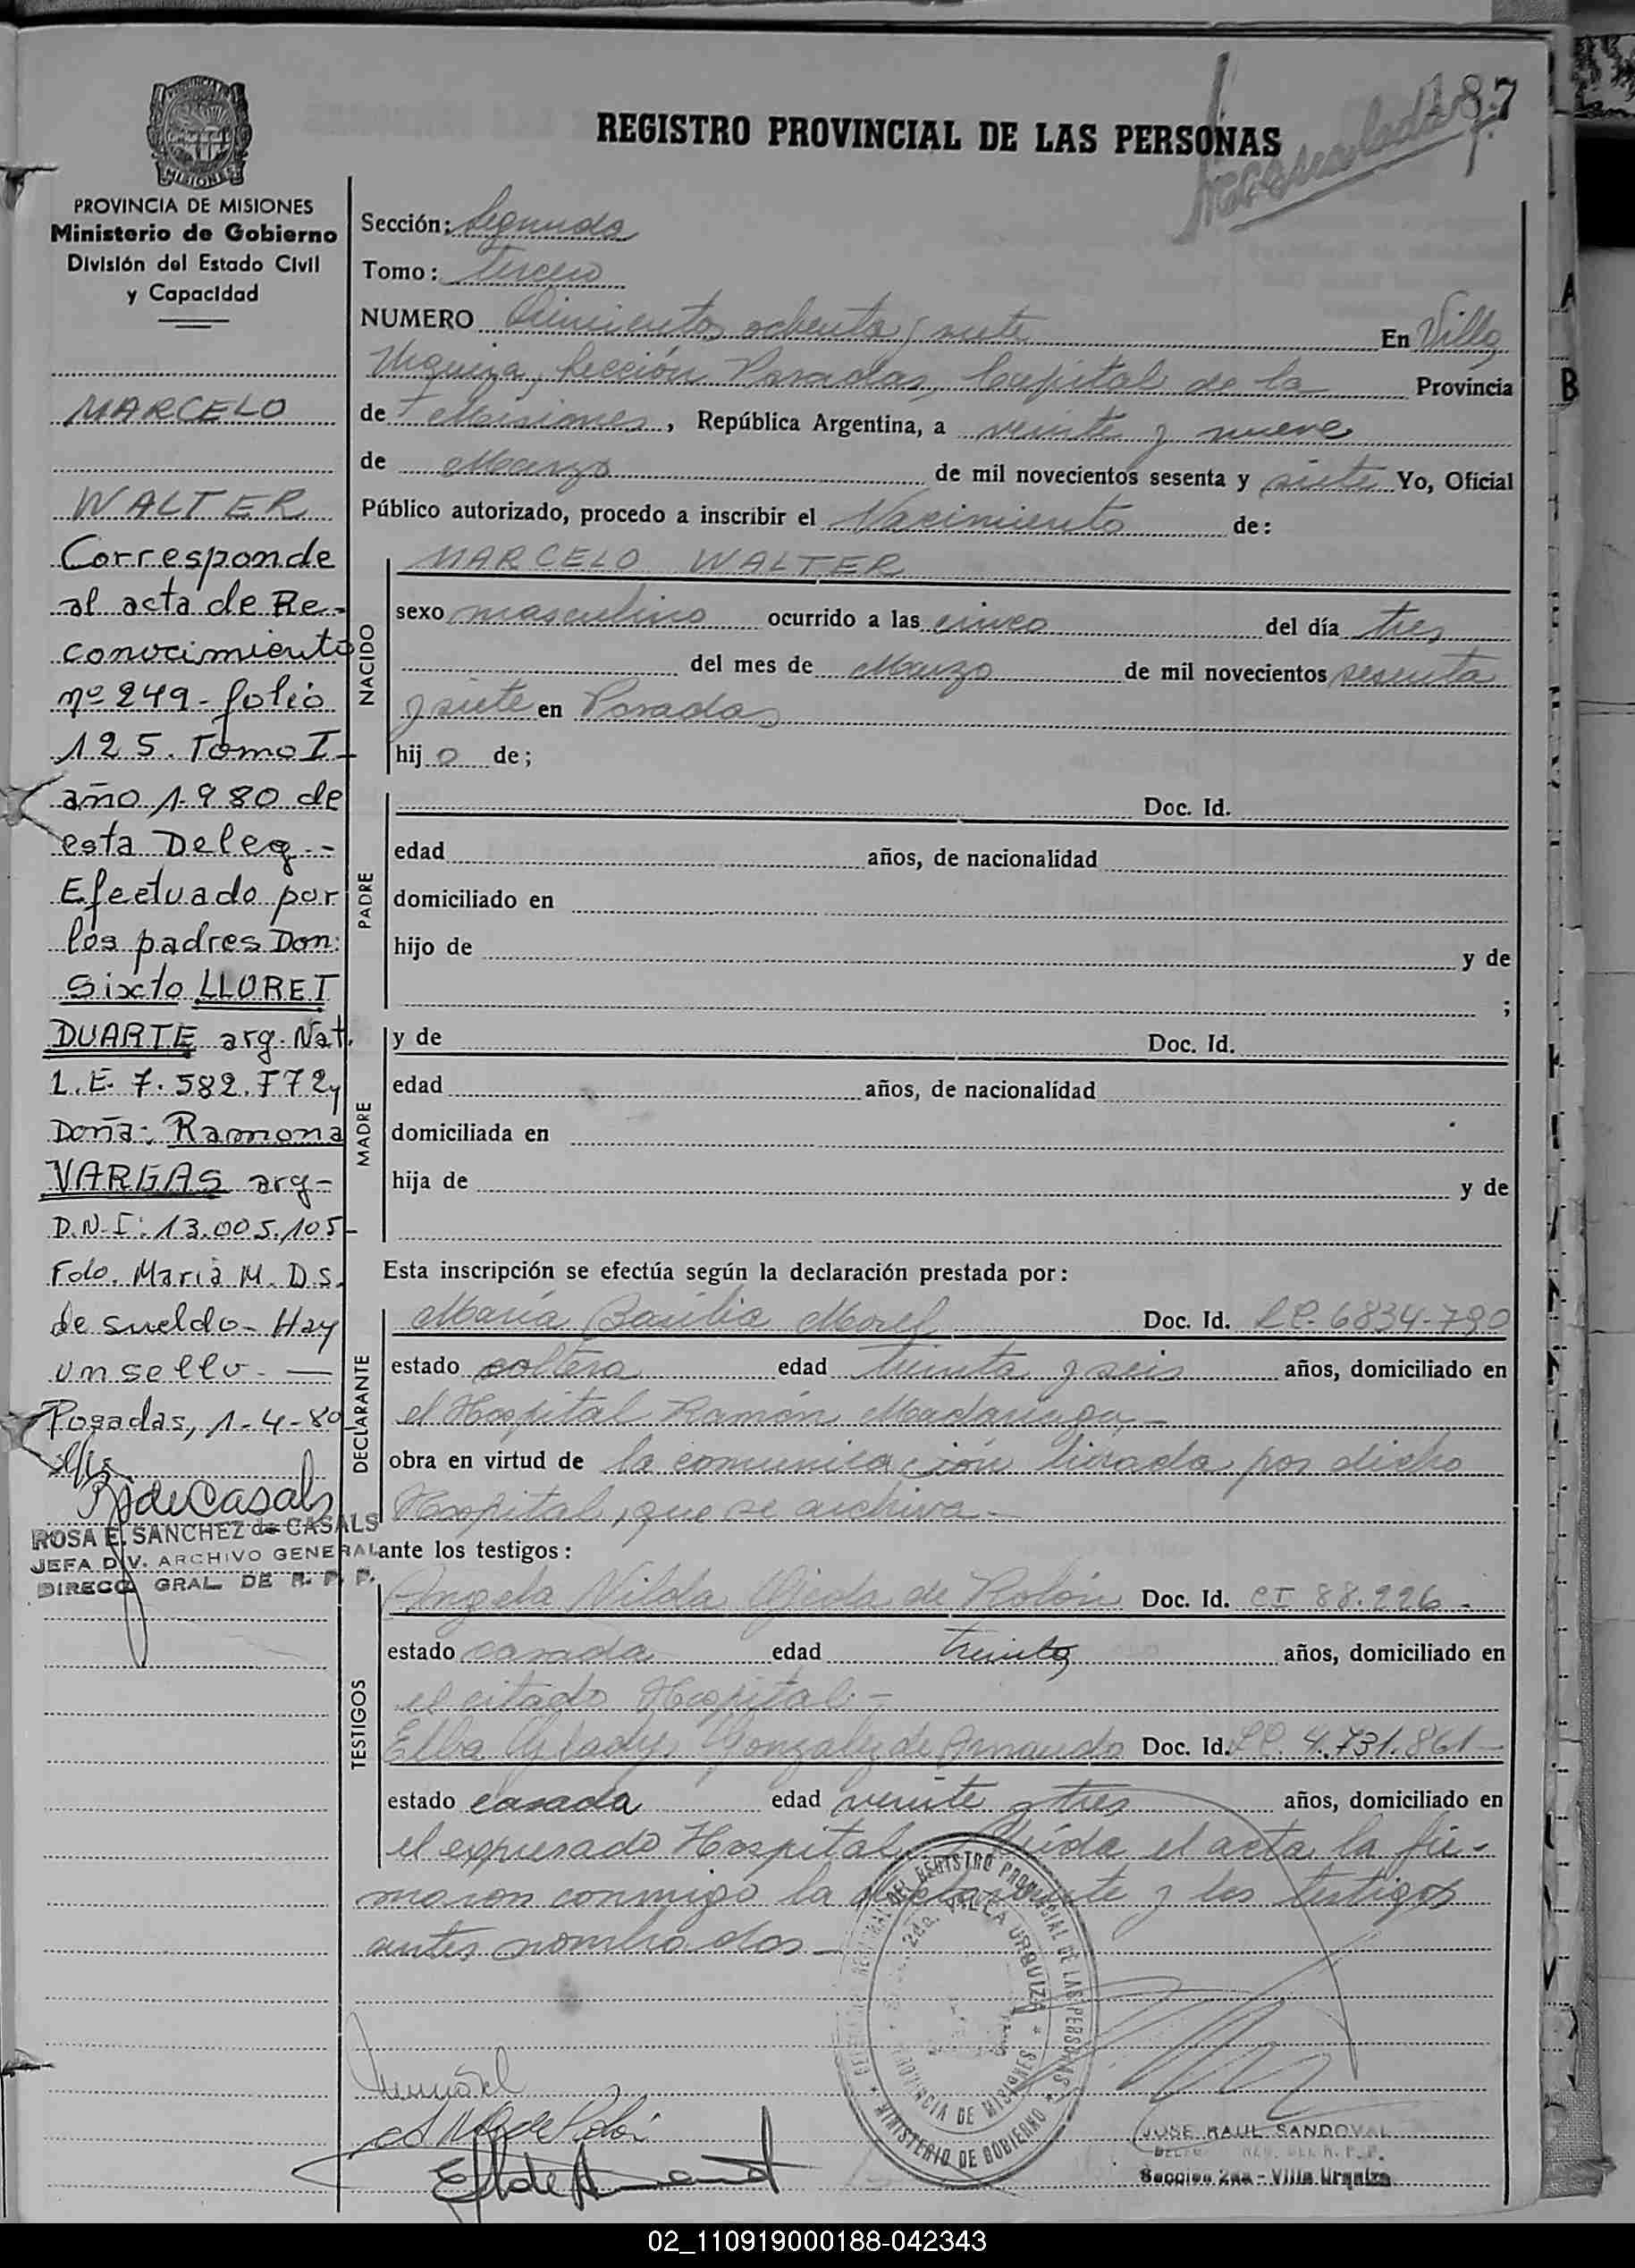 187
REGISTRO PROVINCIAL DE LAS PERSONAS
MISIONES
PROVINCIA DE MISIONES
Ministerio de Gobierno
División del Estado Civil
y Capacidad
MARCELO
WALTER
Corresponde
al acta de Re-
conocimiento
nº 249 - folio
125. Tomo I -
año 1.980 de
esta Deleg. -
Efectuado por
los padres Don:
Sixto LLORET
DUARTE arg. Nat.
L.E. 7.582.772 y
Doña: Ramona
VARGAS arg-
D.N.I: 13.005.105-
Fdo. Maria M. D. S.
de sueldo - Hay
un sello. —
Posadas, 1-4-80
ROSA E. SANCHEZ de CASALS
JEFA DIV. ARCHIVO GENERAL
DIRECC. GRAL DE R. P. P.
Sección: Segunda
Tomo: tercero
NUMERO Quinientos ochenta y siete En Villa
Urquiza, Sección Posadas, Capital de la Provincia
de Misiones, República Argentina, a veinte y nueve
de Marzo de mil novecientos sesenta y siete Yo, Oficial
Público autorizado, procedo a inscribir el Nacimiento de:
NACIDO
MARCELO WALTER
sexo masculino ocurrido a las cinco del día tres
del mes de Marzo de mil novecientos sesenta
y siete en Posadas
hij o de;
PADRE
Doc. Id.
edad años, de nacionalidad
domiciliado en
hijo de y de
;
MADRE
y de Doc. Id.
edad años, de nacionalidad
domiciliada en
hija de y de
Esta inscripción se efectúa según la declaración prestada por:
DECLARANTE
María Basilia Morel Doc. Id. LC. 6834-790
estado soltera edad treinta y seis años, domiciliado en
el Hospital Ramón Madariaga, -
obra en virtud de la comunicación librada por dicho
Hospital, que se archiva -
ante los testigos:
TESTIGOS
Angela Nilda Ojeda de Rolón Doc. Id. CI 88.226 -
estado casada edad treinta años, domiciliado en
el citado Hospital -
Elba Gladys Gonzalez de Amaudo Doc. Id. LC. 4.731.861 -
estado casada edad veinte y tres años, domiciliado en
el expresado Hospital. Leída el acta la fir-
maron conmigo la declarante y los testigos
antes nombrados -
DEL REGISTRO PROVINCIAL DE LAS PERSONAS
2da. VILLA URQUIZA
PROVINCIA DE MISIONES
MINISTERIO DE GOBIERNO
JOSE RAUL SANDOVAL
Sección 2da - Villa Urquiza
02_110919000188-042343